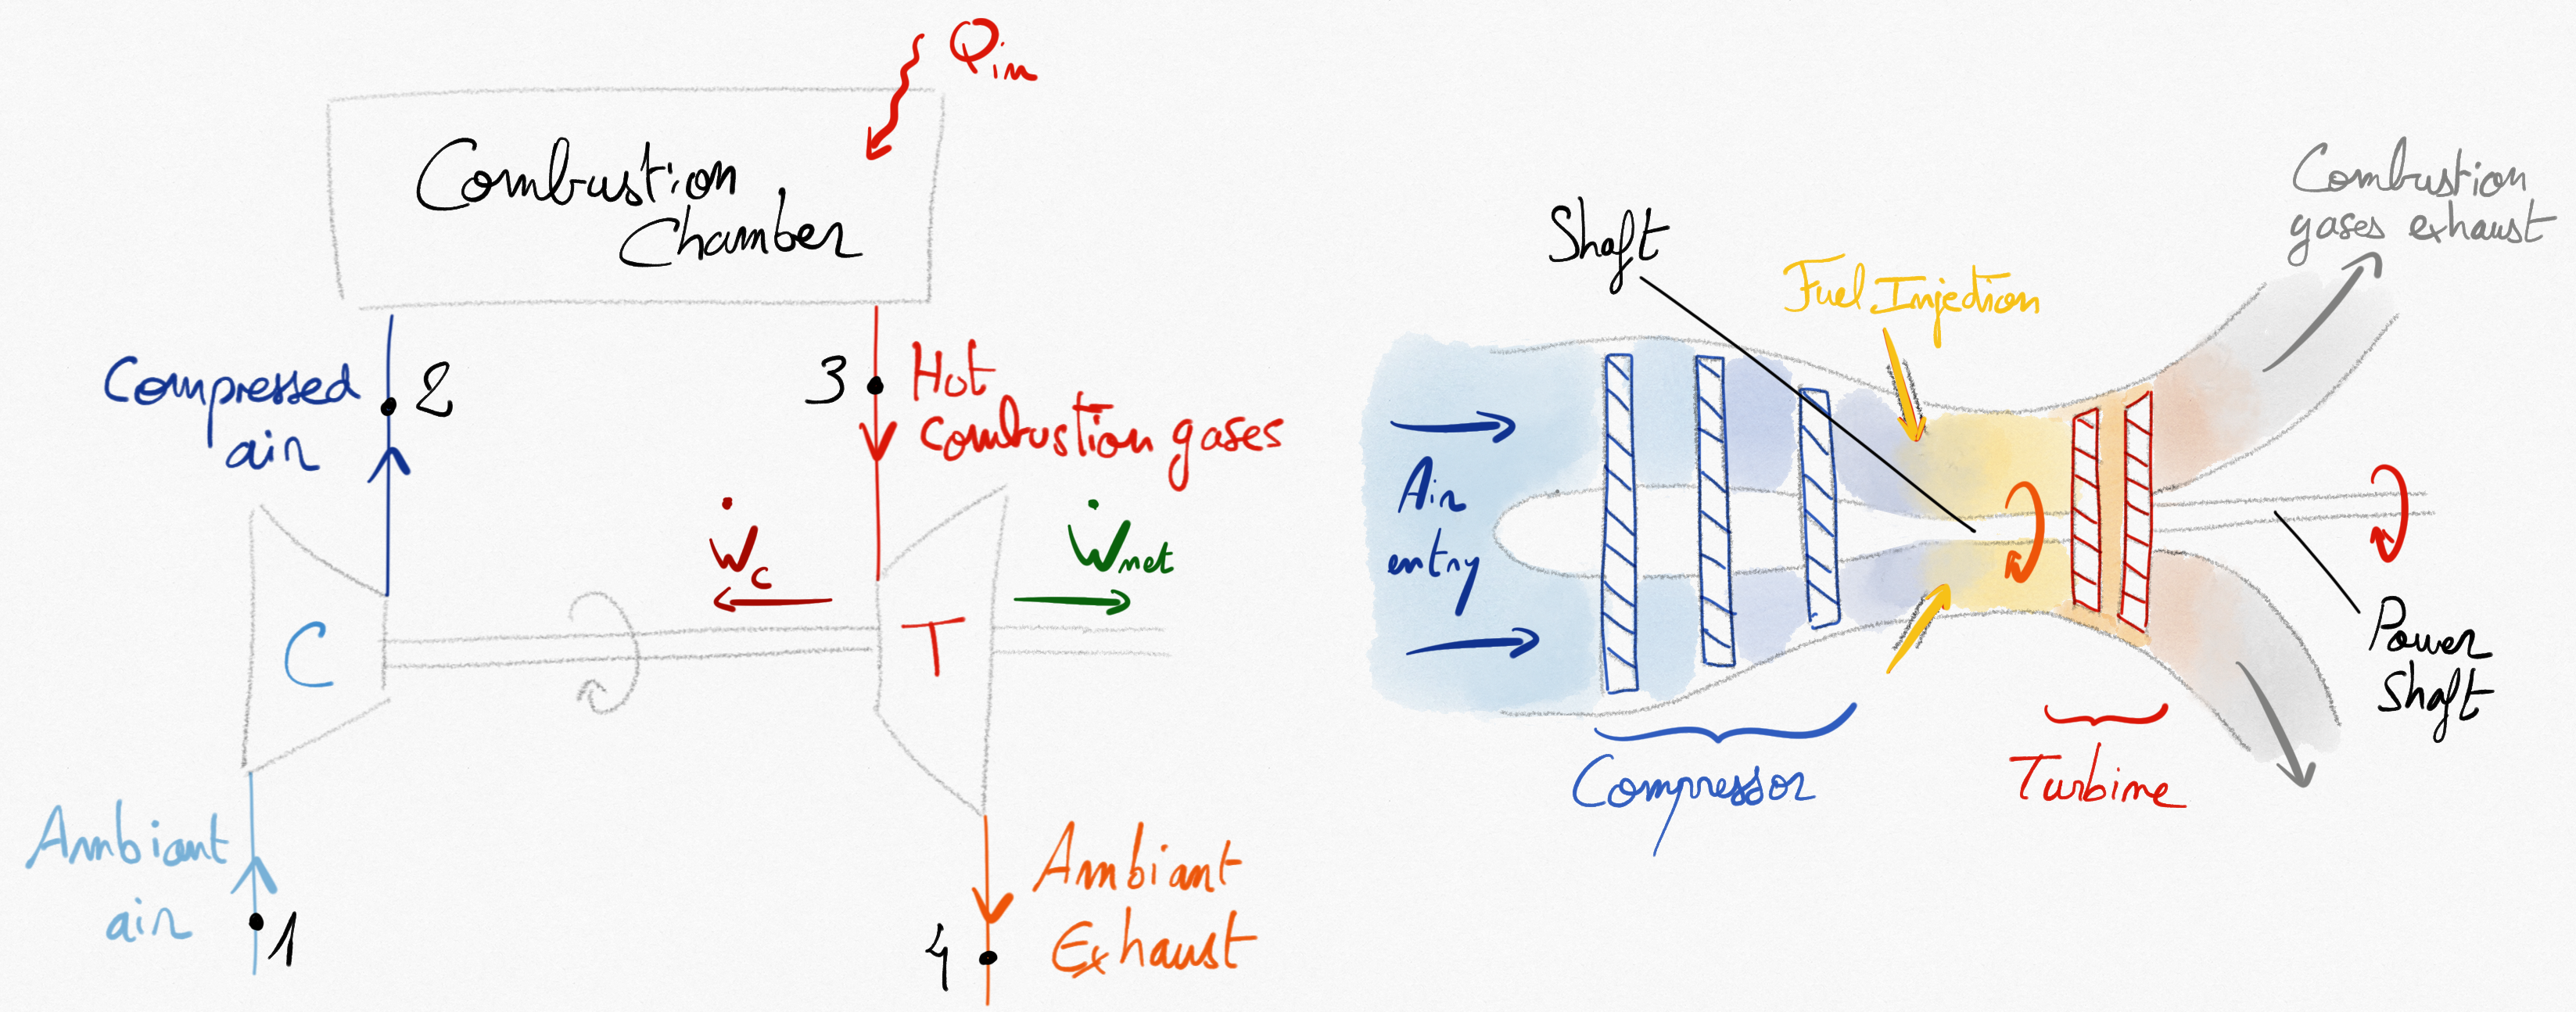 Qin
Combustion
Chamber
Compressed
air
2
3
Hot
Combustion gases
Ẇc
Ẇnet
C
T
Ambiant
air
1
4
Ambiant
Exhaust
Shaft
Fuel Injection
Combustion
gases exhaust
Air
entry
Compressor
Turbine
Power
Shaft